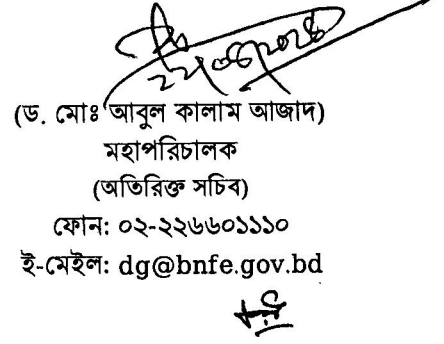 (ড. মোঃ আবুল কালাম আজাদ)
মহাপরিচালক
(অতিরিক্ত সচিব)
ফোন: ০২-২২৬৬০১১১০
ই-মেইল: dg@bnfe.gov.bd